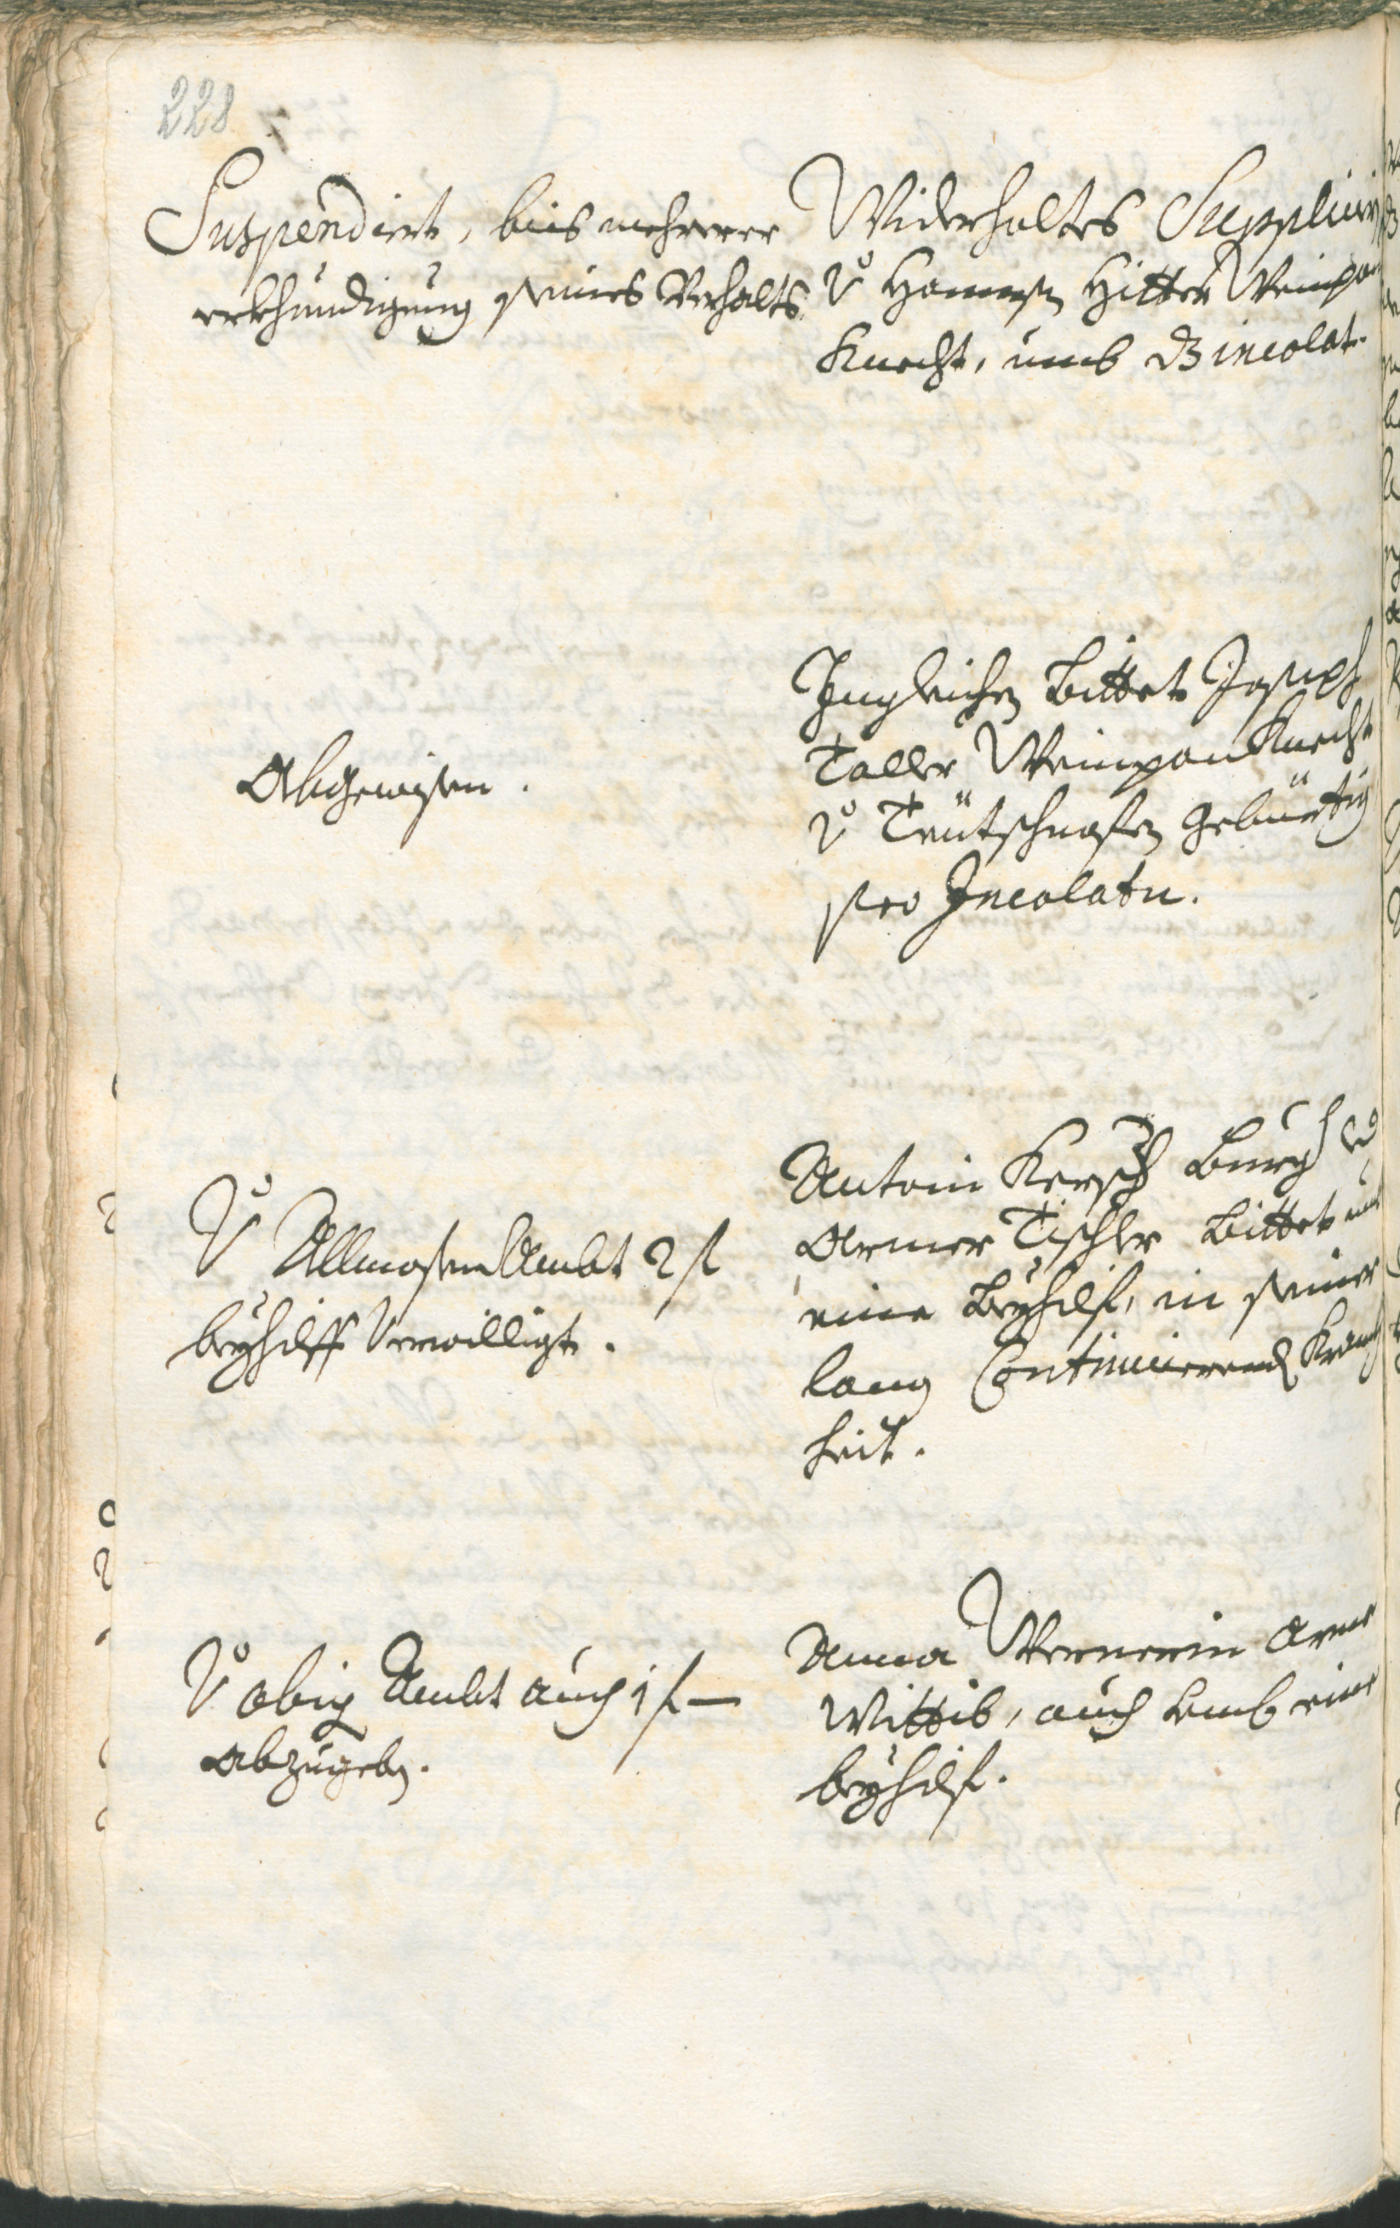 228
Suspendirt, biß mehrerer
erkhundigung seines Verhalts
Widerholtes Suppliciren
V° Hannsen Hitter Weinpau
Knecht, umb dz incolat.
Abgewisen.
Ingleichen bittet Joseph
Taller Weinpau Knecht
V° Teütschnofen gebürtig
pro Incolatu.
V° Allmosen Ambt 2 f
beyhilff verwilligt.
Antoni Kersch Burg. V°
Armer Tischler bittet umb
eine beyhilf, in seiner
lang Continuierend Kranck
heit.
V° obig Ambt auch 1 f —
abzugeben.
Anna Wernerin Arme
Wittib, auch umb eine
beyhilf.